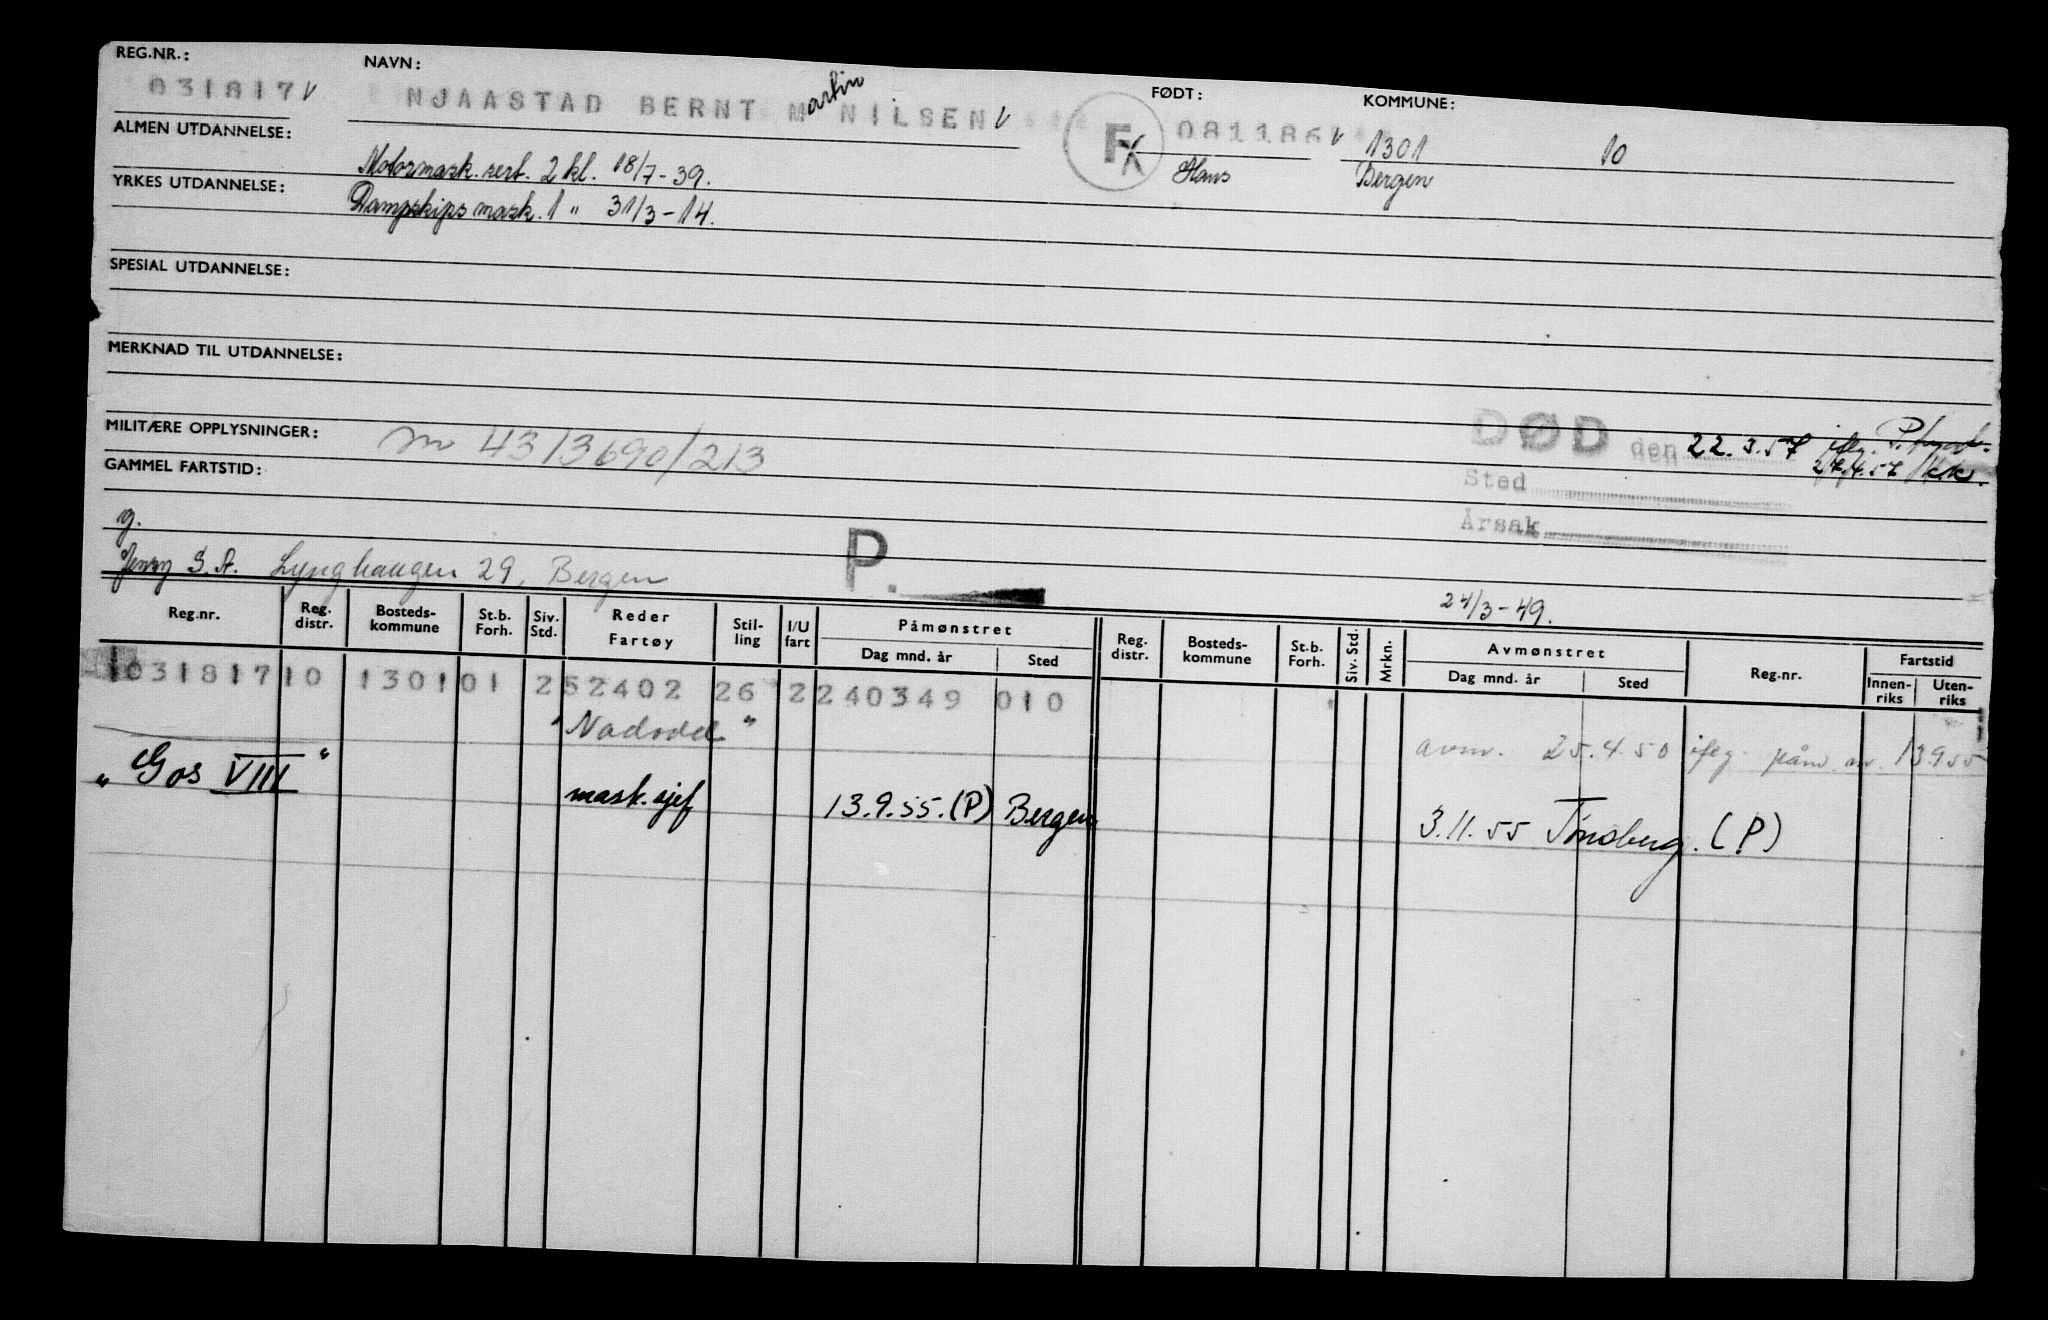 REG.NR.: NAVN: FØDT: KOMMUNE:
031817 NJAASTAD BERNT Martin NILSEN Fx 081186 1301 10
ALMEN UTDANNELSE: Hans Bergen
Motormask. sert. 2 kl. 18/7-39.
YRKES UTDANNELSE:
Dampskips mask. 1 " 31/3-14.
SPESIAL UTDANNELSE:
MERKNAD TIL UTDANNELSE:
MILITÆRE OPPLYSNINGER: m 4313690/213
DØD den 22.3.57 iflg.
27.4.57 KK.
GAMMEL FARTSTID: Sted
g. P. Årsak
Jenny Lynghaugen 29, Bergen
24/3-49.
Reg.nr. Reg. distr. Bosteds-kommune St.b. Forh. Siv. Std. Reder Fartøy Stil-ling I/U fart Påmønstret Dag mnd. år Sted Reg. distr. Bosteds-kommune St.b. Forh. Siv. Std. Mrkn. Avmønstret Dag mnd. år Sted Reg.nr. Fartstid Innen-riks Uten-riks
1031817 10 1301 01 2 52402 26 2 240349 010
"Nadodd" avm. 25.4.50 iflg. 13955
"Gos VIII" mask.sjef 13.9.55. (P) Bergen 3.11.55 Tønsberg. (P)